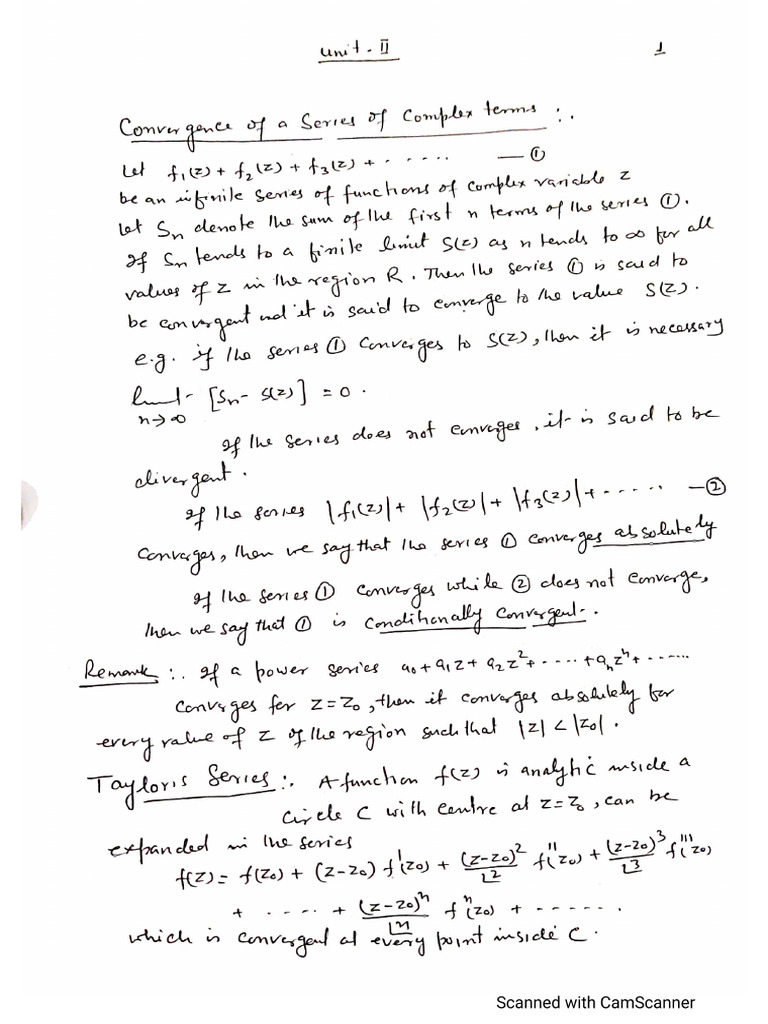 Unit - II 1
Convergence of a Series of Complex terms :.
Let f₁(z) + f₂(z) + f₃(z) + ...... — ①
be an infinite series of functions of complex variable z
Let Sₙ denote the sum of the first n terms of the series ①.
If Sₙ tends to a finite limit S(z) as n tends to ∞ for all
values of z in the region R. Then the series ① is said to
be convergent and it is said to converge to the value S(z).
e.g. if the series ① converges to S(z), then it is necessary
limit [Sₙ - S(z)] = 0.
n→∞
If the series does not converges, it is said to be
divergent.
If the series |f₁(z)| + |f₂(z)| + |f₃(z)| + ...... — ②
Converges, then we say that the series ① converges absolutely
If the series ① converges while ② does not converge,
then we say that ① is conditionally convergent.
Remark :. If a power series a₀ + a₁z + a₂z² + .... + aₙzⁿ + ......
Converges for z = z₀, then it converges absolutely for
every value of z of the region such that |z| < |z₀|.
Taylor's Series :. A function f(z) is analytic inside a
Circle C with centre at z = z₀, can be
expanded in the series
f(z) = f(z₀) + (z-z₀) f'(z₀) + (z-z₀)²/⌊2 f''(z₀) + (z-z₀)³/⌊3 f'''(z₀)
+ ..... + (z-z₀)ⁿ/⌊n fⁿ(z₀) + ......
which is convergent at every point inside C.
Scanned with CamScanner